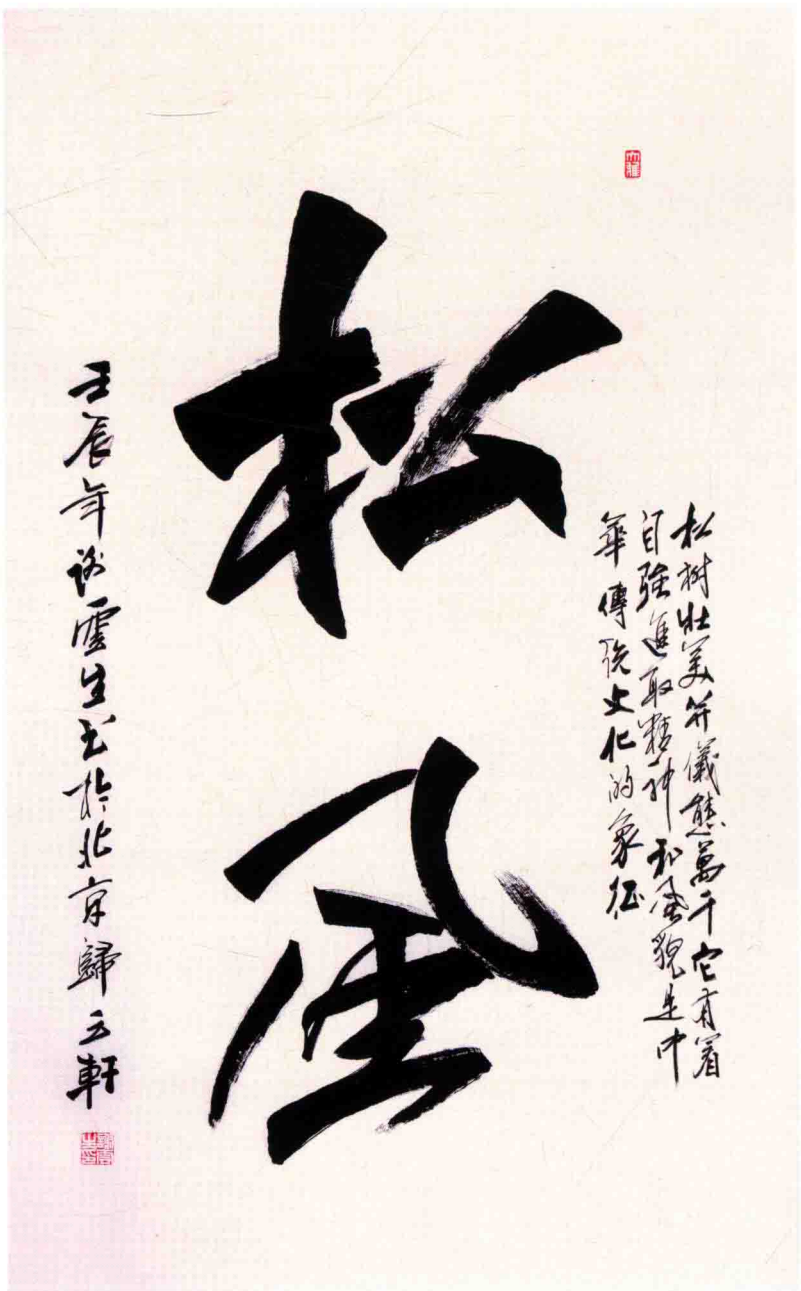 松風
松樹壯美并儀態萬千它有着
自強進取精神和風貌是中
華傳統文化的象征
壬辰年謝雲生书於北京歸云軒
大雅
謝雲生印